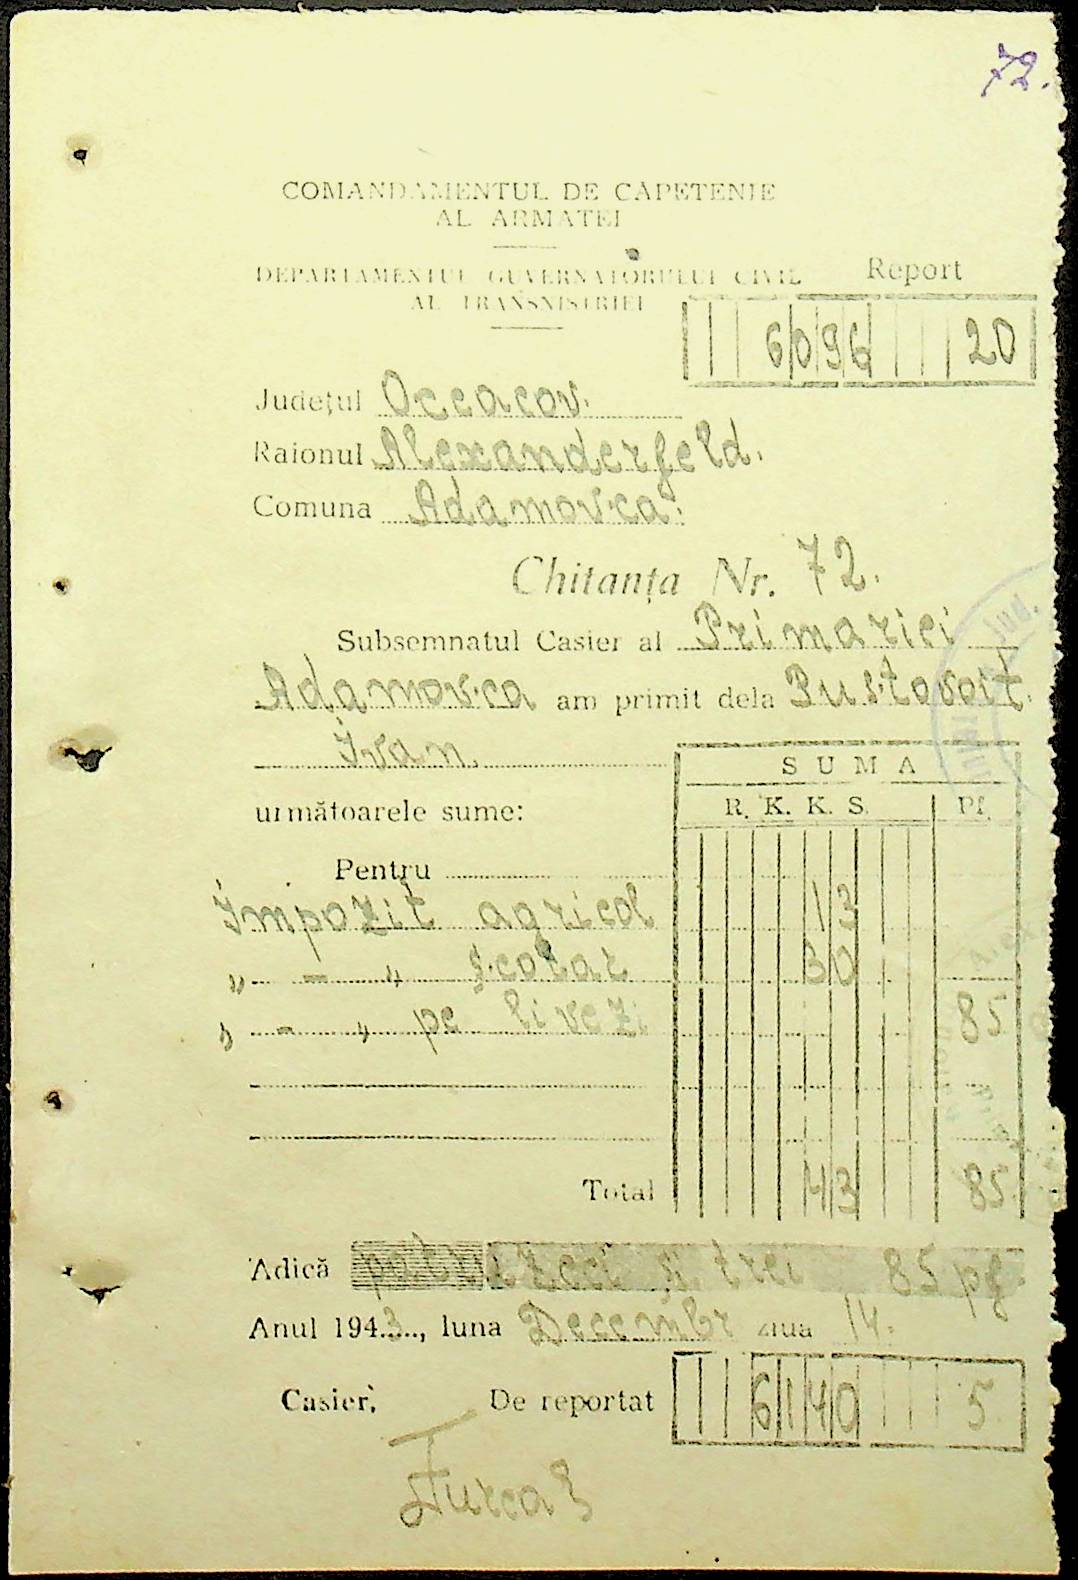 72.
COMANDAMENTUL DE CAPETENIE
AL ARMATEI
DEPARTAMENTUL GUVERNATORULUI CIVIL
AL TRANSNISTRIEI
Report
6096 20
Județul Oceacov.
Raionul Alexanderfeld.
Comuna Adamovca.
Chitanța Nr. 72.
Subsemnatul Casier al Primariei
Adamovca am primit dela Pustovoit
Ivan.
SUMA
următoarele sume: R. K. K. S. Pf.
Pentru
Impozit agricol 13
„ — „ școlar 30
„ — „ pe livezi 85
Total 43 85
Adică patru zeci și trei 85 pf.
Anul 1943, luna Decembr ziua 14.
Casier, De reportat 6140 5